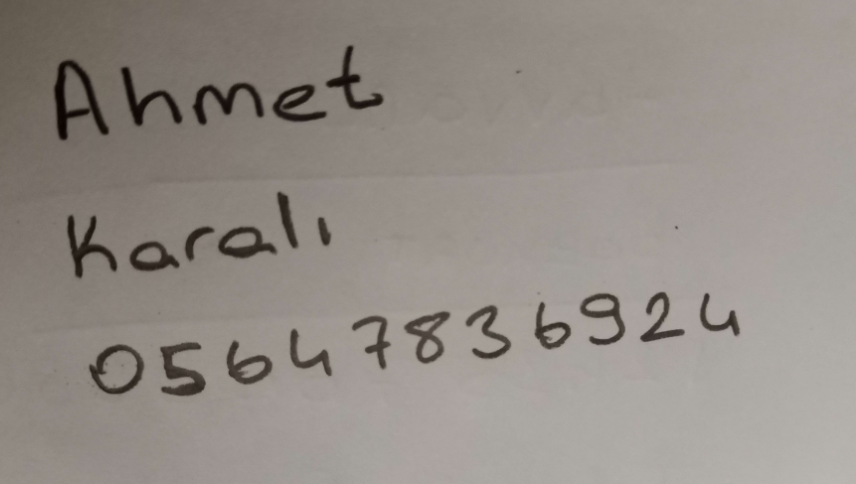 Ahmet
Karalı
05647836924